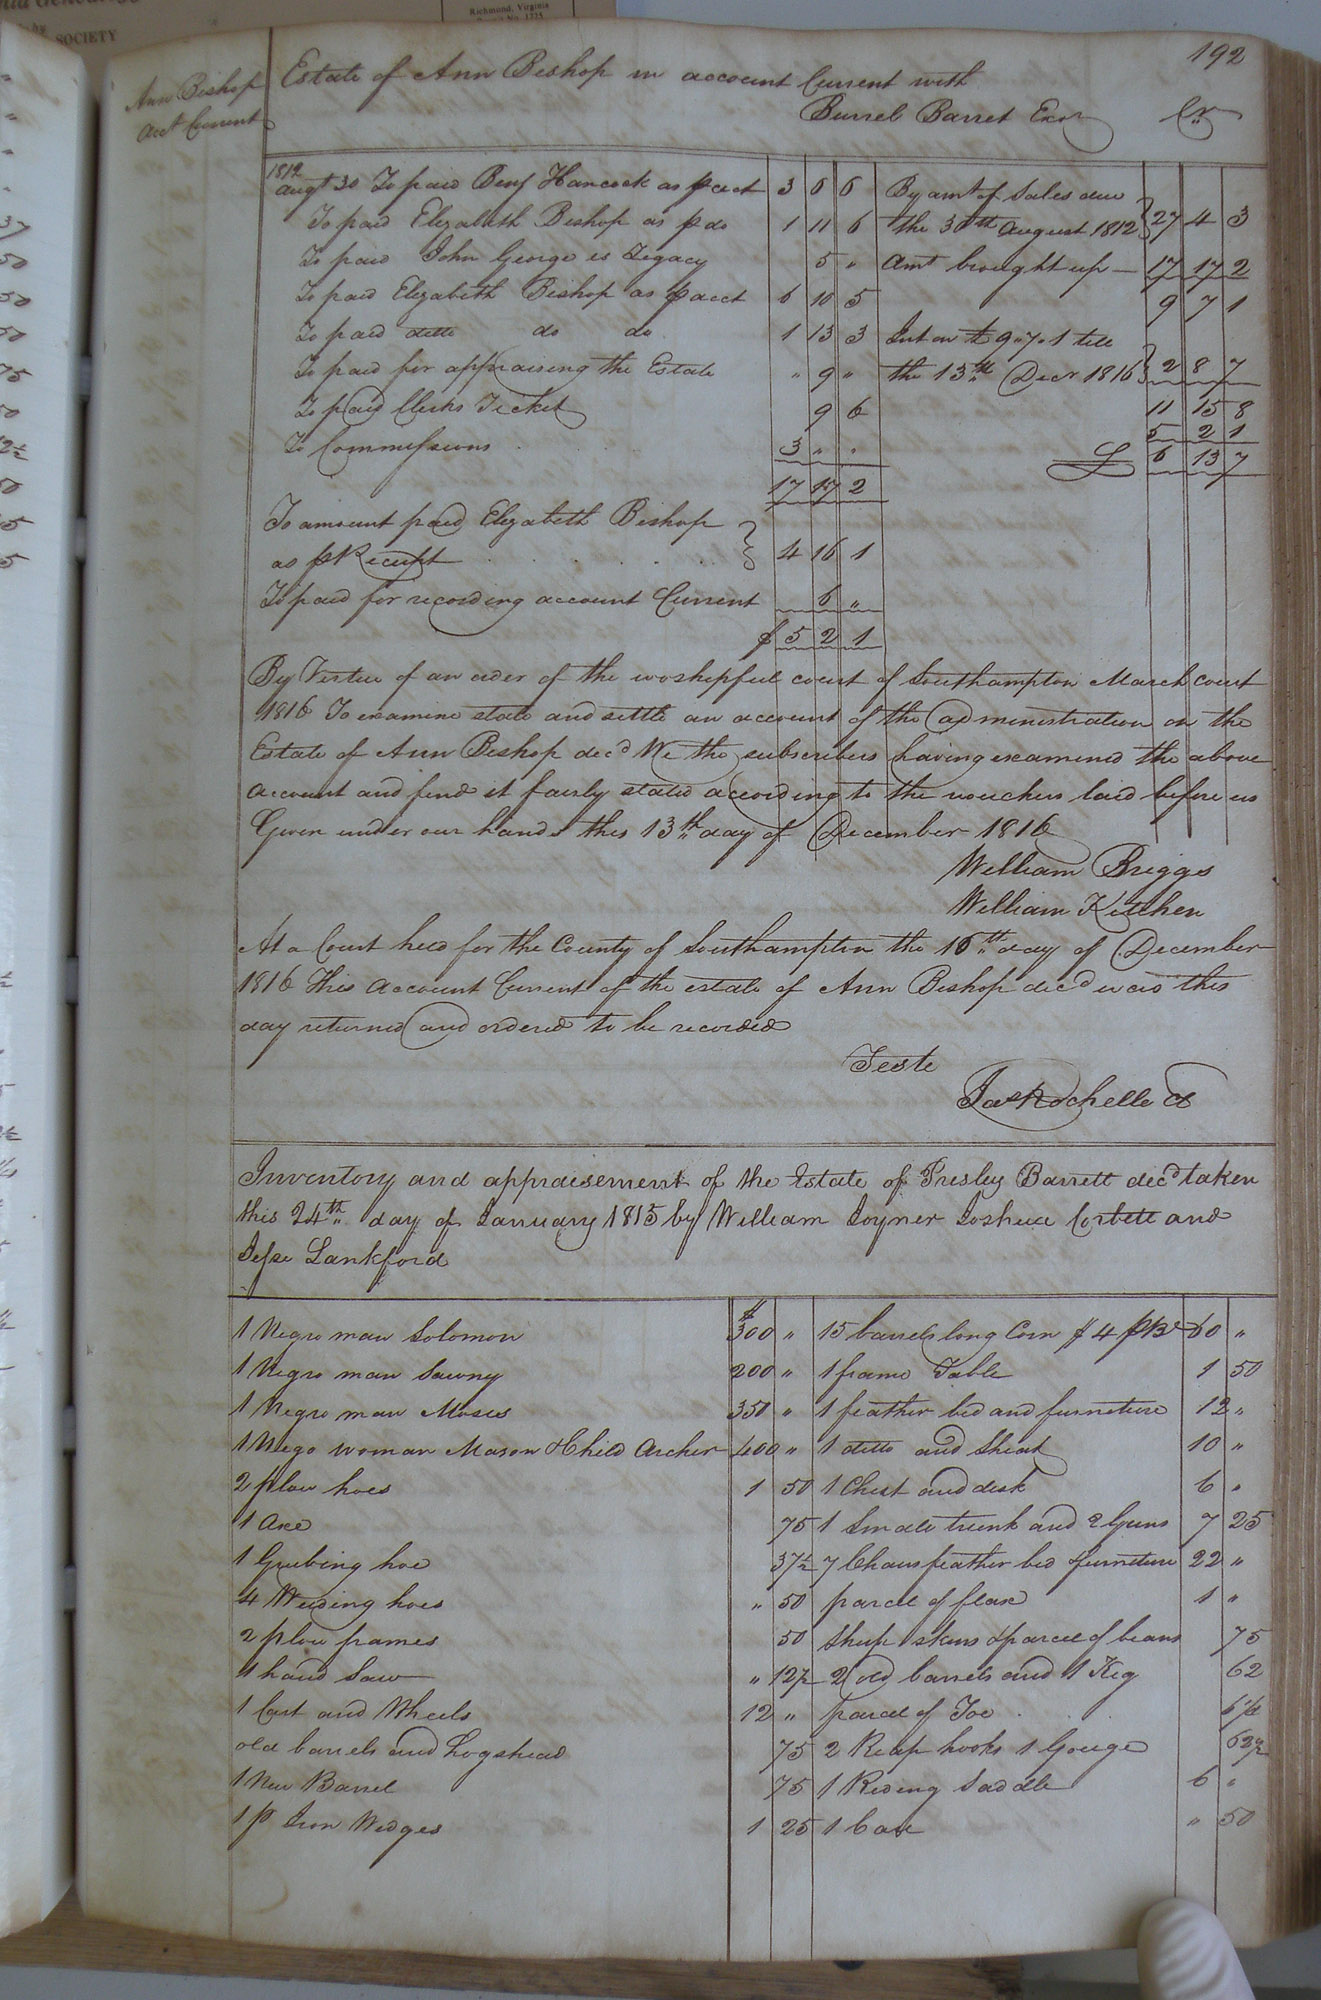 SOCIETY
Richmond, Virginia
192
Ann Bishop
acct Current
Estate of Ann Bishop in account Current with
Burrel Barret Exor Cr
1812
Augt 30 To paid Benj Hancock as p acct 3 6 6
To paid Elizabeth Bishop as p do 1 11 6
To paid John George is Legacy 5 "
To paid Elizabeth Bishop as p acct 6 10 5
To paid ditto do do 1 13 3
To paid for appraising the Estate " 9 "
To paid Clerks Ticket 9 6
To Commissions 3 " "
17 17 2
To amount paid Elizabeth Bishop
as p Receipt 4 16 1
To paid for recording account Current 6 "
£ 5 2 1
By amt of Sales due
the 30th August 1812 27 4 3
Amt brought up 17 17 2
9 7 1
Int on £ 9"7"1 till
the 13th Decr 1816 2 8 7
11 15 8
5 2 1
£ 6 13 7
By Vertue of an oder of the woshipful court of Southampton March court
1816 To examine state and settle an account of the administration on the
Estate of Ann Bishop decd We the subscribers having examined the above
account and find it fairly stated according to the vouchers laid before us
Given under our hands this 13th day of December 1816
William Briggs
William Kitchen
At a Court held for the County of Southampton the 16th day of December
1816 This Account Current of the estate of Ann Bishop decd was this
day returned and ordered to be recorded
Teste
Jas Rochelle Cl
Inventory and appraisement of the Estate of Presley Barrett decd taken
this 24th day of January 1815 by William Joyner Joshua Corbett and
Jesse Lankford
1 Negro man Solomon $ 300 "
1 Negro man Sawny 200 "
1 Negro man Moses 350 "
1 Nego woman Mason & Child Archer 400 "
2 plow hoes 1 50
1 Axe 75
1 Grubing hoe 37½
4 Weeding hoes " 50
2 plow frames 50
1 hand Saw " 12½
1 Cart and Wheels 12 "
old barrels and hogshead 75
1 New Barrel 75
1 p Iron Wedges 1 25
15 barrels long Corn $ 4 p Bl 60 "
1 frame Table 1 50
1 feather bed and furneture 12 "
1 ditto and Sheat 10 "
1 Chest and desk 6 "
1 Smale trunk and 2 Guns 7 25
7 Chairs feather bed & furneture 22 "
parcel of flax 1 "
Sheep skins & parcel of beans 75
2 old barrels and 1 Keg 62
parcel of Toe 6¼
2 Reap hooks 1 Gouge 62½
1 Rideing Saddle 6 "
1 Case " 50